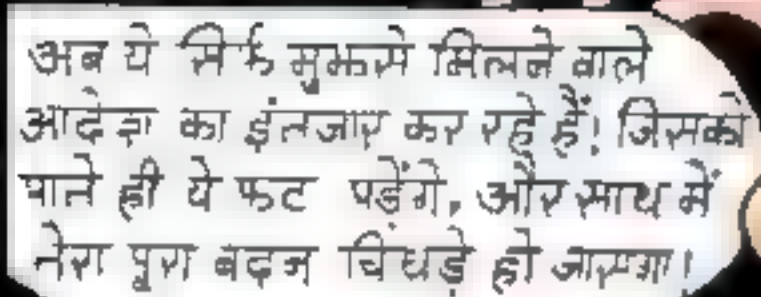 अब ये सिर्फ मुझसे मिलने वाले
आदेश का इंतजार कर रहे हैं! जिसको
पाते ही ये फट पड़ेंगे, और साथ में
तेरा पूरा बदन चिंथड़े हो जाएगा!